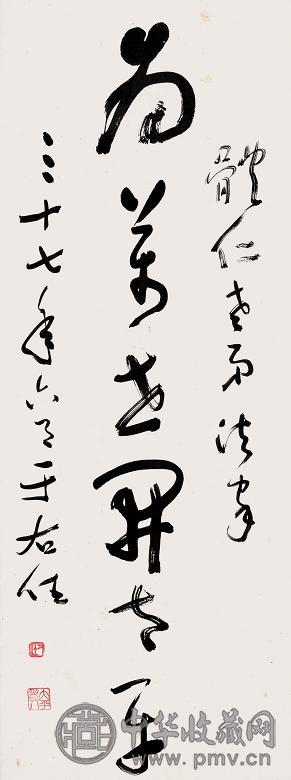 體仁老弟法家
為萬世開太平
三十七年六月于右任
中华收藏网
www.pmv.cn